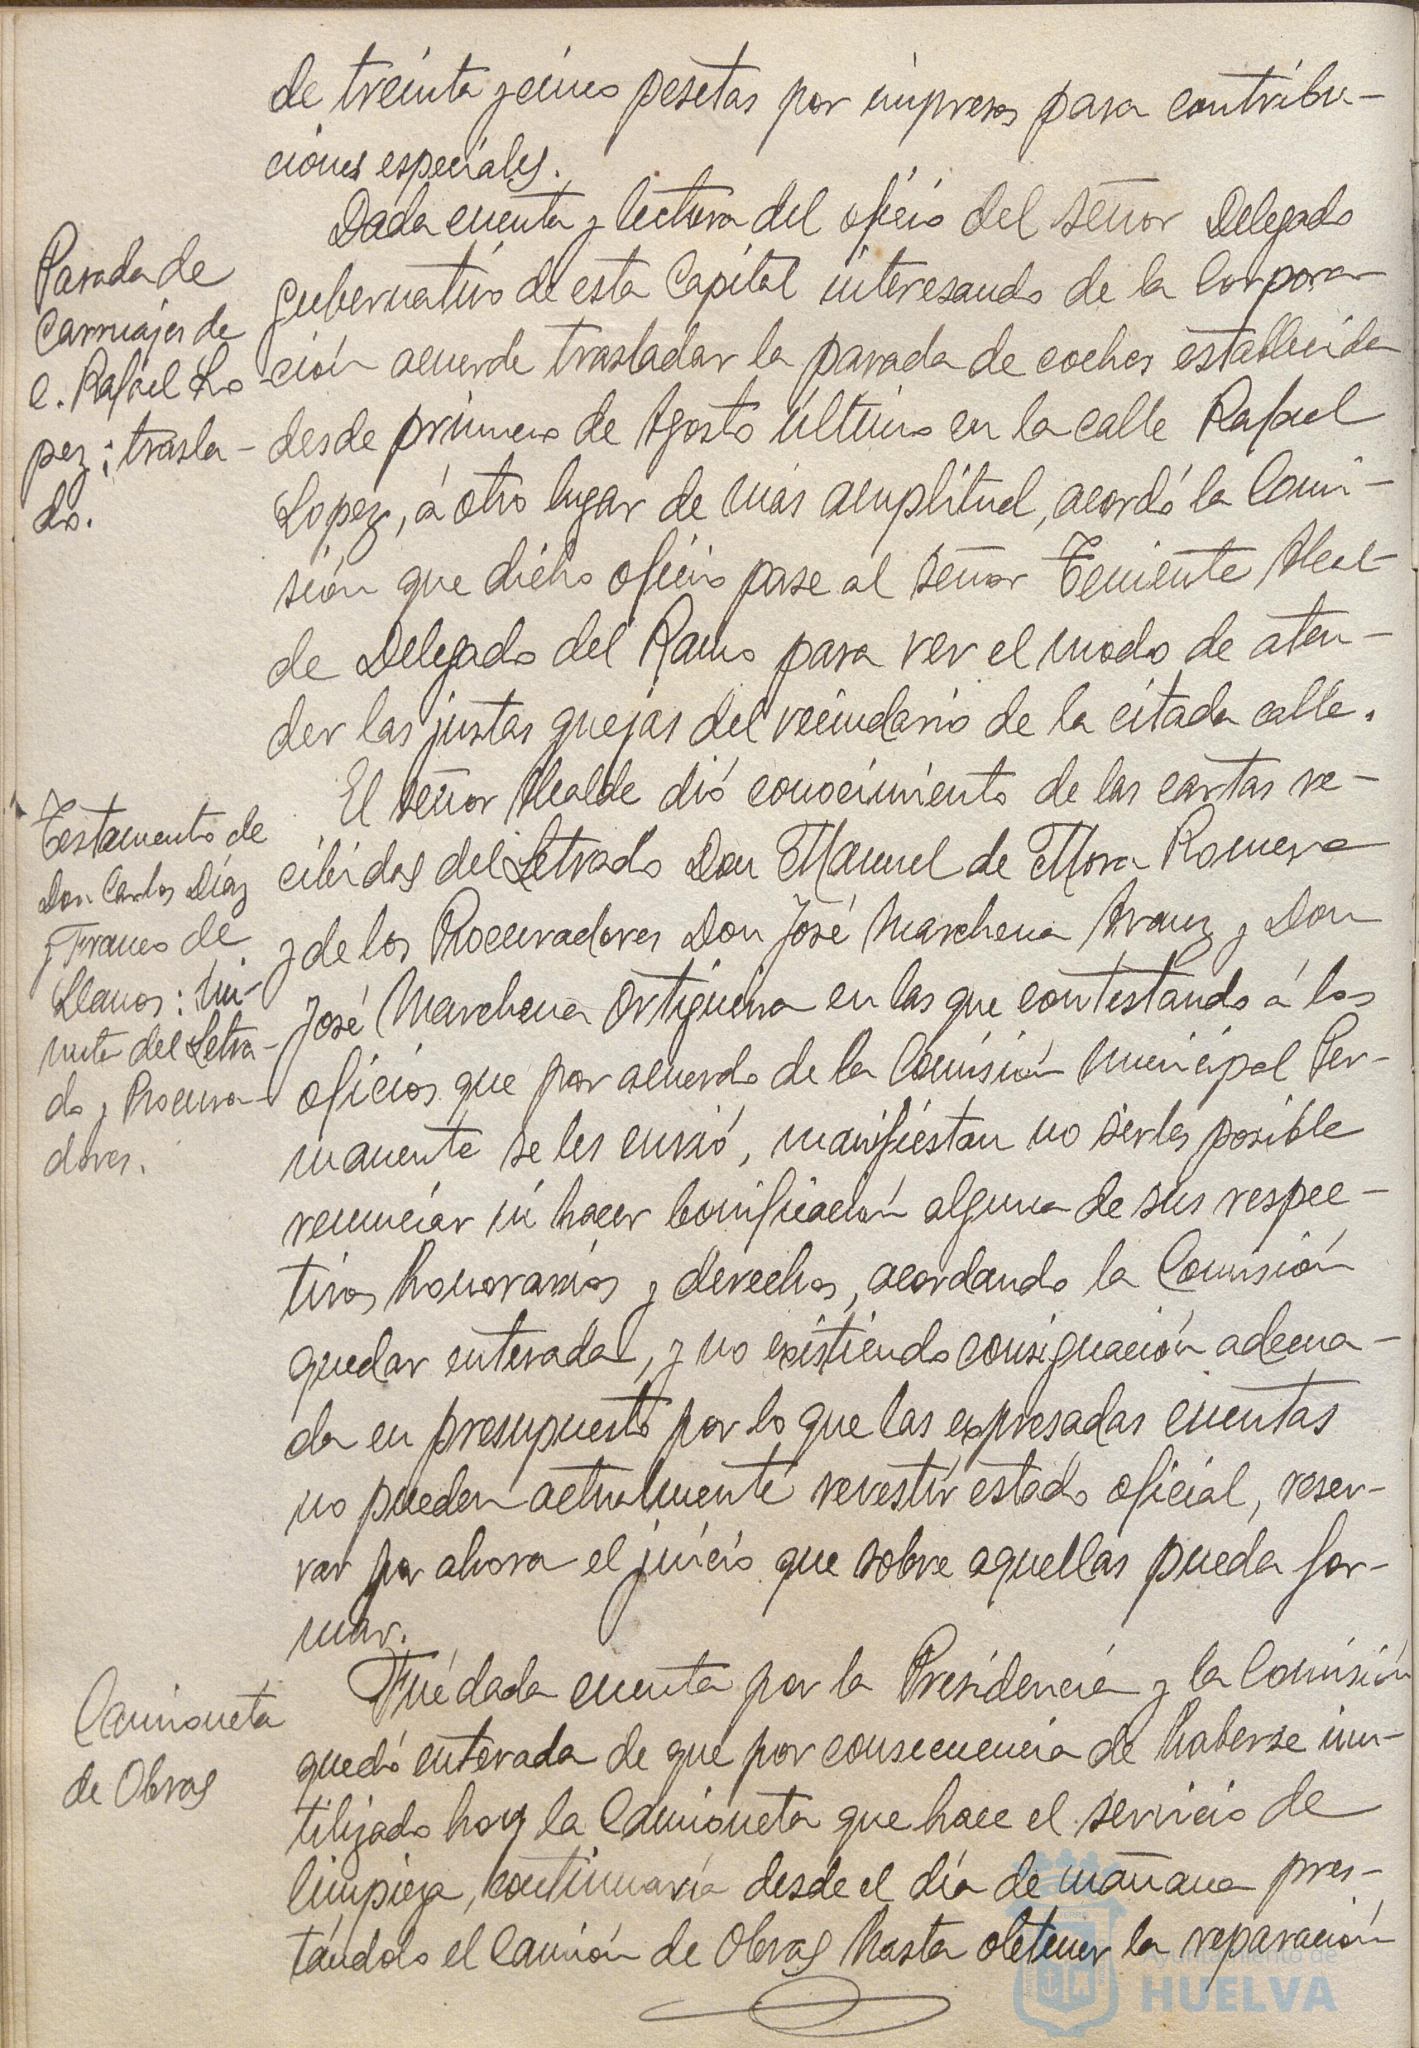 de treinta y cinco pesetas por impresos para contribu-
ciones especiales.
Parada de
Carruajes de
c. Rafael Lo
pez; trasla-
do.
Dada cuenta y lectura del oficio del señor Delegado
gubernativo de esta Capital interesando de la Corpora-
ción acuerde trasladar la parada de coches establecida
desde primero de Agosto último en la calle Rafael
Lopez, á otro lugar de más amplitud, acordó la Comi-
sión que dicho oficio pase al señor Teniente Alcal-
de Delegado del Ramo para ver el modo de aten-
der las justas quejas del vecindario de la citada calle.
Testamento de
Don Carlos Díaz
y Franco de
Llanos: Mi-
nuta del Letra-
do y Procura-
dores.
El señor Alcalde dió conocimiento de las cartas re-
cibidas del Letrado Don Manuel de Mora Romero
y de los Procuradores Don José Marchena Aranz y Don
José Marchena Ortigueira en las que contestando á los
oficios que por acuerdo de la Comisión Municipal Per-
manente se les envió, manifiestan no serles posible
renunciar ni hacer bonificación alguna de sus respec-
tivos honorarios y derechos, acordando la Comisión
quedar enterada, y no existiendo consignación adecua-
da en presupuesto por lo que las expresadas cuentas
no pueden actualmente revestir estado oficial, reser-
var por ahora el juicio que sobre aquellas pueda for-
mar.
Camioneta
de Obras
Fué dada cuenta por la Presidencia y la Comisión
quedó enterada de que por consecuencia de haberse inu-
tilizado hoy la Camioneta que hace el servicio de
limpieza, continuaría desde el día de mañana pres-
tándolo el Camión de Obras hasta obtener la reparación
Ayuntamiento de
HUELVA